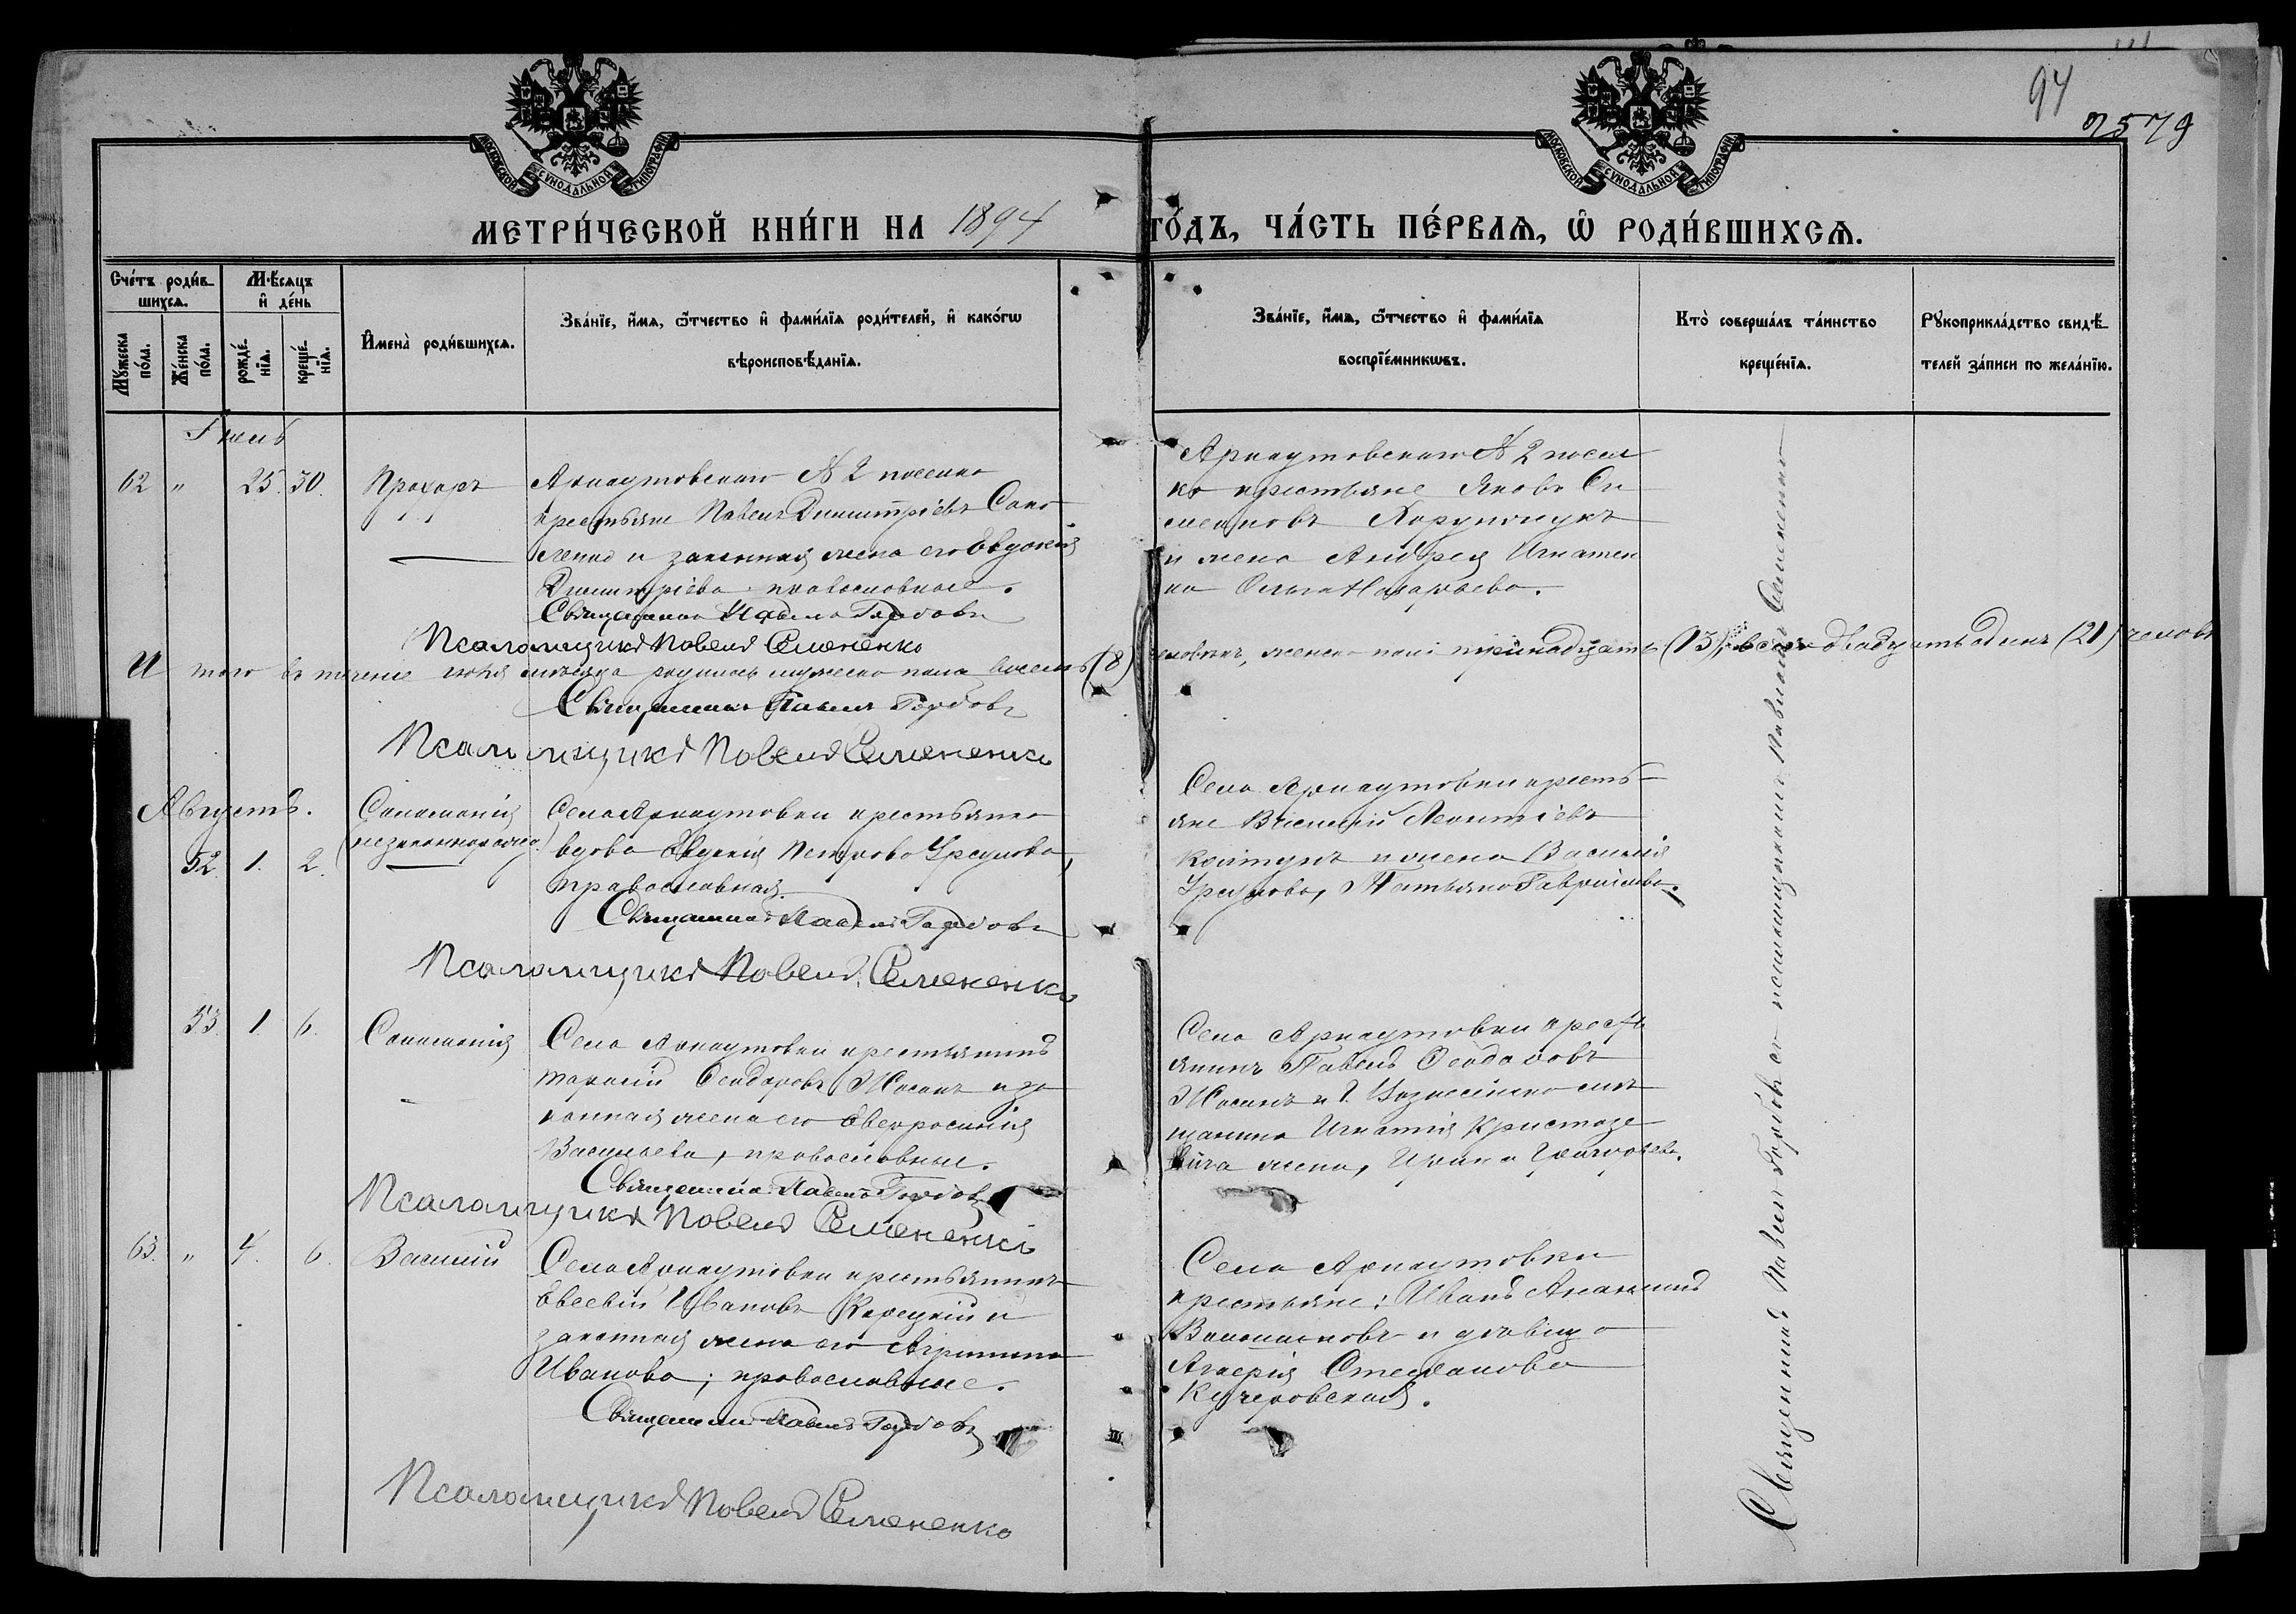 94
2579
МОСКОВСКОЙ СУНОДАЛЬНОЙ ТИПОГРАФІИ
МОСКОВСКОЙ СУНОДАЛЬНОЙ ТИПОГРАФІИ
МЕТРИ́ЧЕСКОЙ КНИ́ГИ НА 1894 ГО́ДЪ, ЧА́СТЬ ПЕ́РВАѦ, Ѡ РОДИ́ВШИХСѦ.
Сче́тъ роди́в-
шихсѧ.
Мꙋ́жеска по́ла.
Же́нска по́ла.
Мѣ́сѧцъ
и҆ де́нь
рожде́-
нїѧ.
креще́-
нїѧ.
И҆мена̀ роди́вшихсѧ.
Зва́нїе, и҆́мѧ, ѻ҆́тчество и҆ фами́лїѧ роди́телей, и҆ како́гѡ
вѣроисповѣ́данїѧ.
Зва́нїе, и҆́мѧ, ѻ҆́тчество и҆ фами́лїѧ
воспрїе́мникѡвъ.
Кто̀ соверша́лъ та́инство
креще́нїѧ.
Рꙋкоприкла́дство свидѣ́-
телей за́писи по жела́нїю.
Іюль
62 " 25. 30. Прохоръ
Арнаутовскаго № 2 поселка
крестьяне Павелъ Димитріевъ
и законная жена его Евдокія
Димитріева православные.
Священникъ Павелъ Горбовъ
Псаломщикъ Павелъ Семененко
Арнаутовскаго № 2 посел
ка крестьяне Яковъ Си
меоновъ
и жена Андрея Игнатен
ка Ольга Назарьева.
Итого въ теченіе іюля мѣсяца родилось мужеска пола восемь (8) человѣкъ, женска пола тринадцать (13), всего двадцать одинъ (21) человѣкъ
Священникъ Павелъ Горбовъ
Псаломщикъ Павелъ Семененко
Августъ.
52. 1. 2. Саломонія
(незаконнорожд.)
Села Арнаутовки крестьянка
вдова Евдокія Петрова Урсулова,
православная.
Священникъ Павелъ Горбовъ
Псаломщикъ Павелъ Семененко
Села Арнаутовки кресть-
яне Василій Леонтіевъ
Колтунъ и жена Василія
Урсулова, Татьяна Гавриилова.
53. 1. 6. Саломонія
Села Арнаутовки крестьянинъ
Тарасій Ѳеодоровъ Жосанъ и за
конная жена его Евфросинія
Васильева, православные.
Священникъ Павелъ Горбовъ
Псаломщикъ Павелъ Семененко
Села Арнаутовки кресть
янинъ Павелъ Ѳеодоровъ
Жосанъ и г. Вознесенска мѣ
щанина Игнатія
жена, Ирина Григорьева.
63. " 4. 6. Василій
Села Арнаутовки крестьянинъ
Евсевій Ивановъ Корецкій и
законная жена его Агриппина
Иванова; православные.
Священникъ Павелъ Горбовъ
Псаломщикъ Павелъ Семененко
Села Арнаутовки
крестьяне: Иванъ Ананьинъ
и дѣвица
Стефанова
Кучеровская.
Священникъ Павелъ Горбовъ съ псаломщикомъ Павломъ Семененко